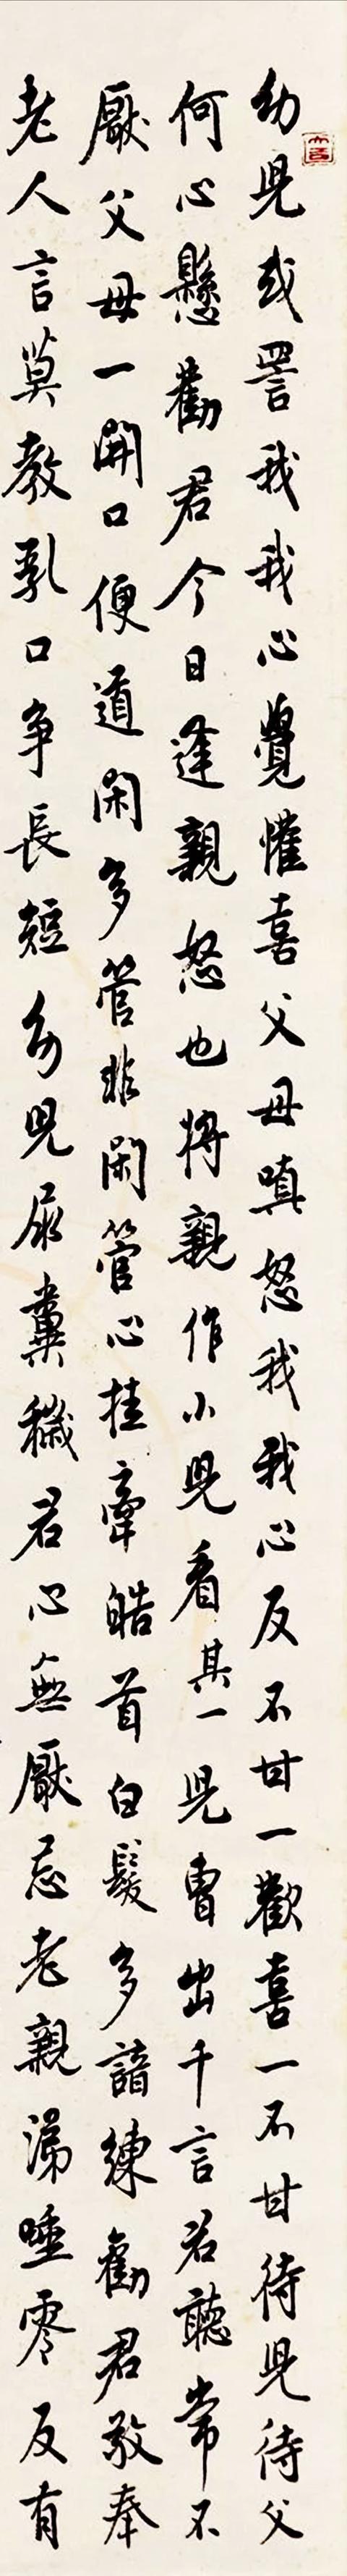 幼兒或詈我我心覺懽喜父母嗔怒我我心反不甘一歡喜一不甘待兒待父
何心懸勸君今日逢親怒也將親作小兒看其一兒曹出千言君聽常不
厭父母一開口便道閑多管非閑管心挂牽皓首白髮多諳練勸君敬奉
老人言莫教乳口爭長短幼兒尿糞穢君心無厭忌老親涕唾零反有